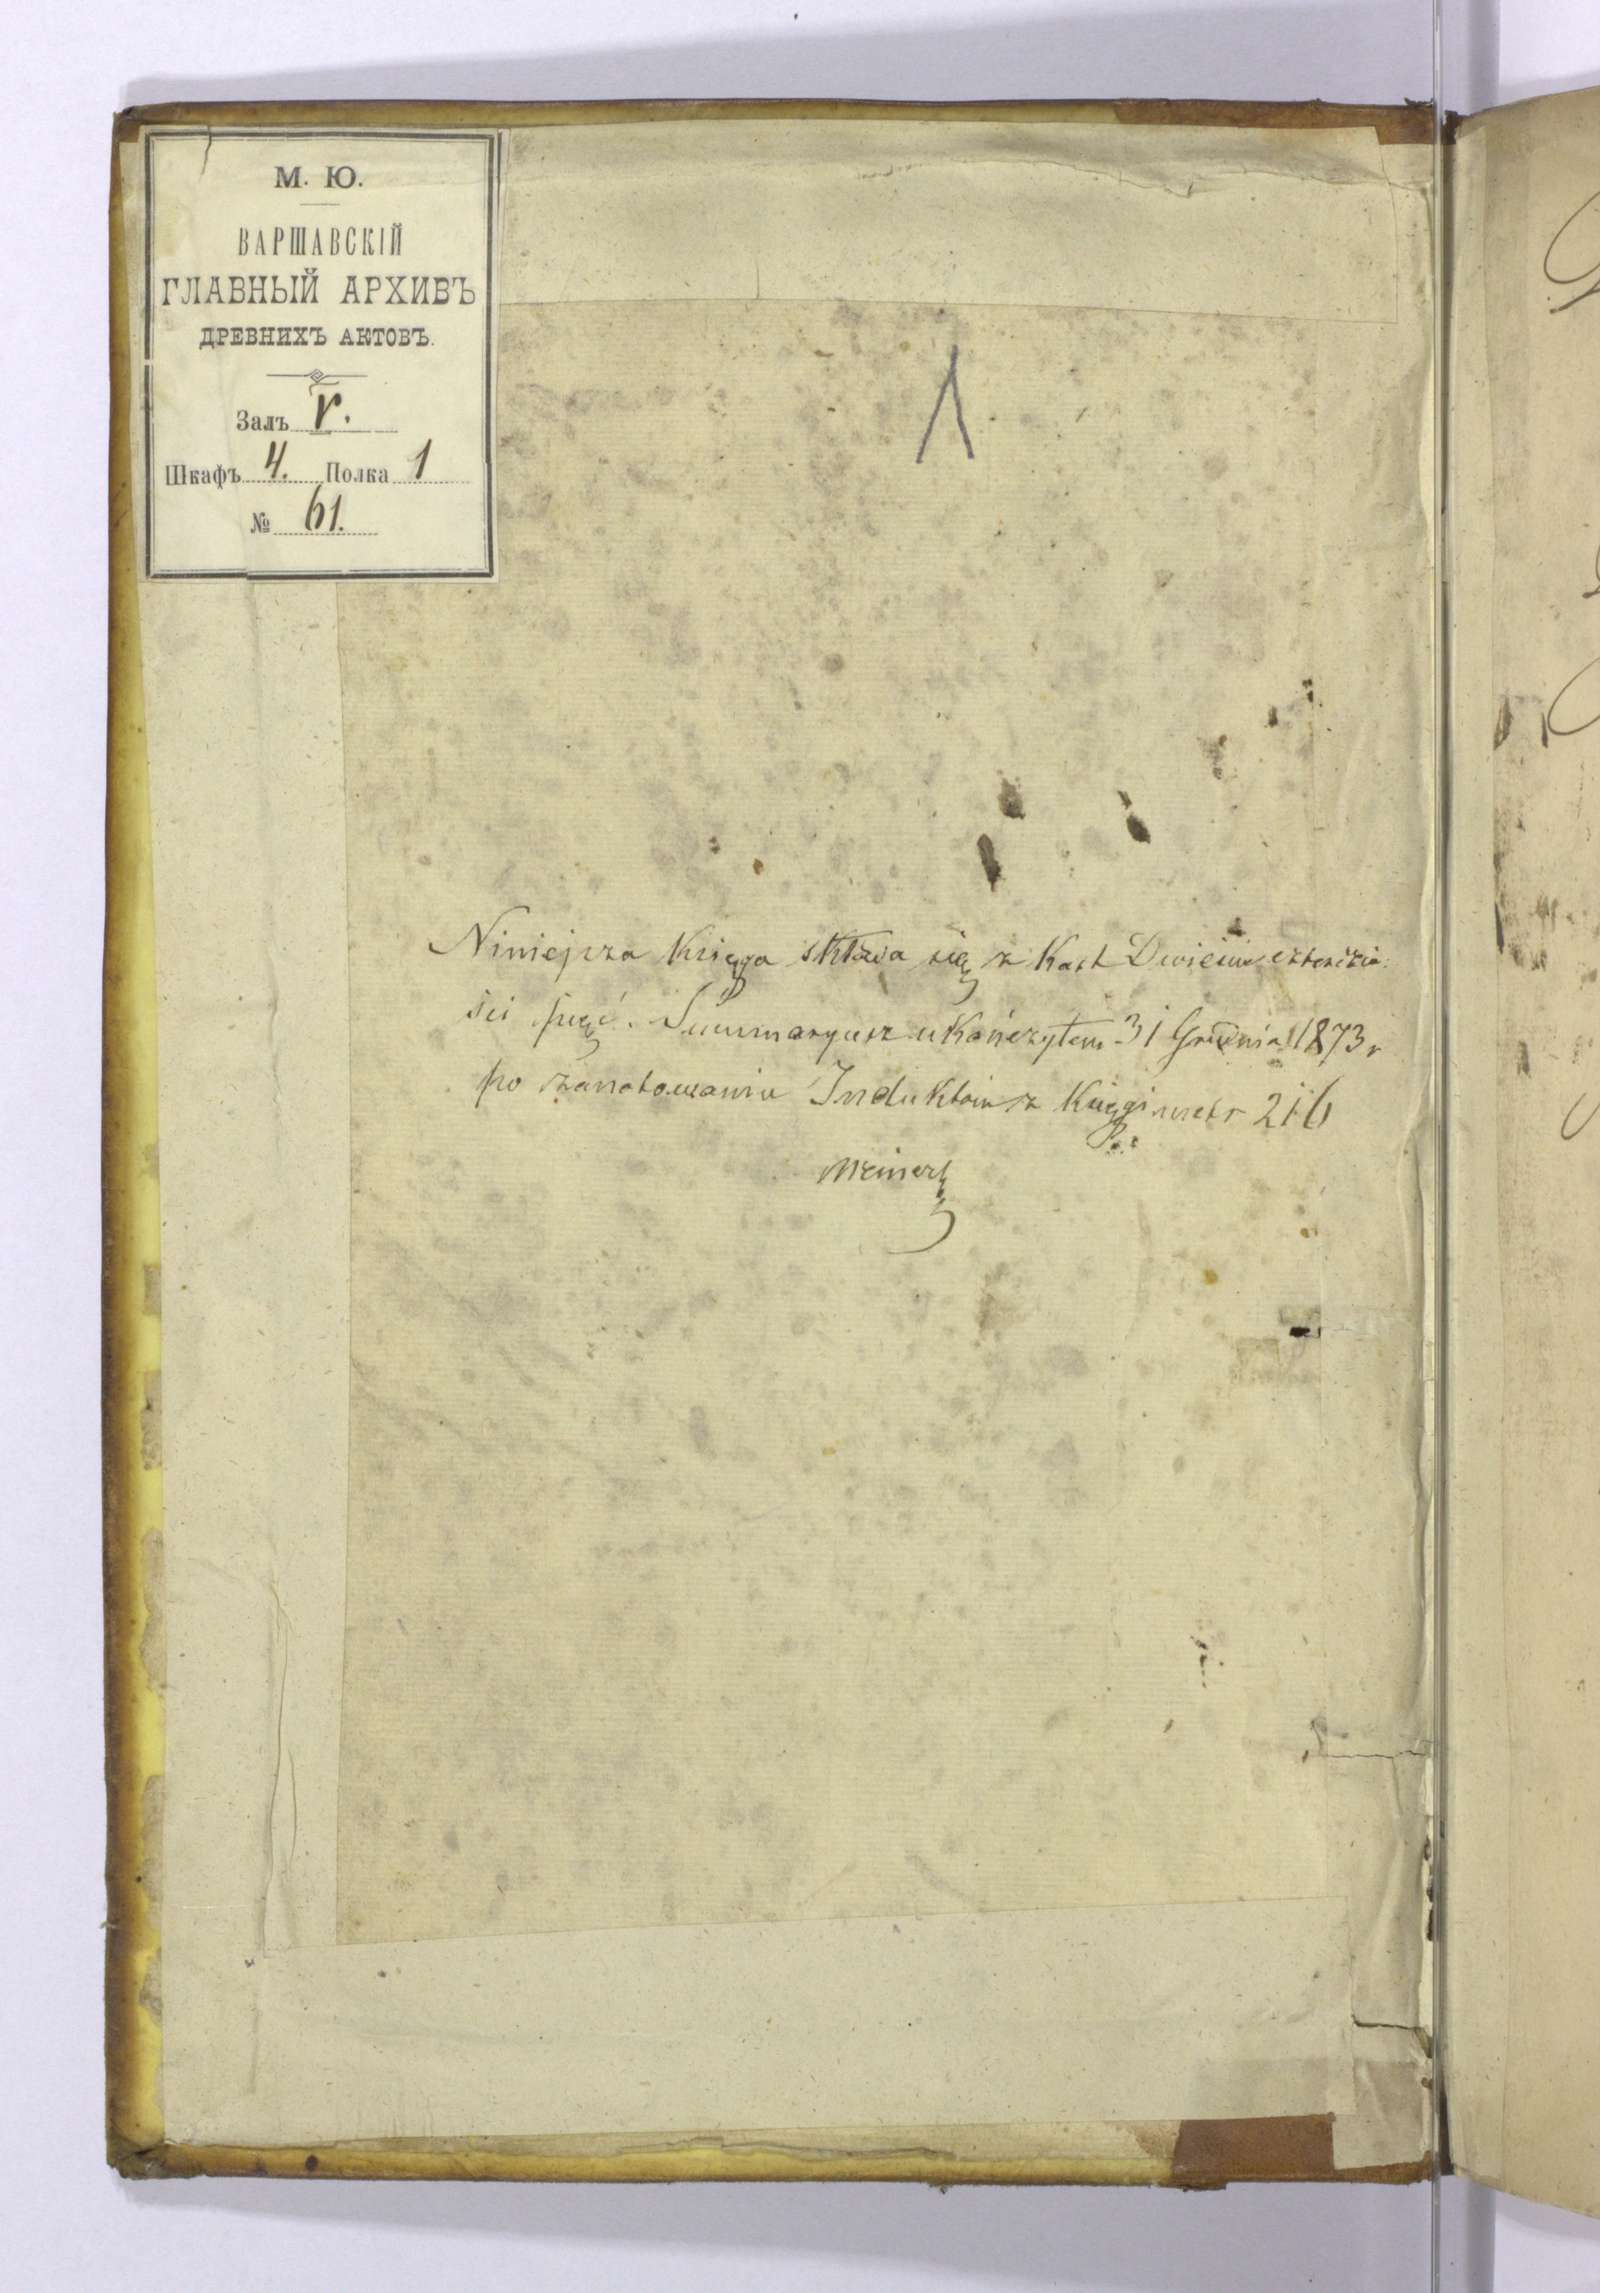 М. Ю.
ВАРШАВСКІЙ
ГЛАВНЫЙ АРХИВЪ
ДРЕВНИХЪ АКТОВЪ.
Залъ V.
Шкафъ 4. Полка 1
№ 61.
Niniejsza Księga składa się z Kart Dwieście czterdzie:
ści pięć. Summaryusz ukończyłem 31 Grudnia 1873 r
po zanotowaniu Induktów z Księgi 216
Meinert